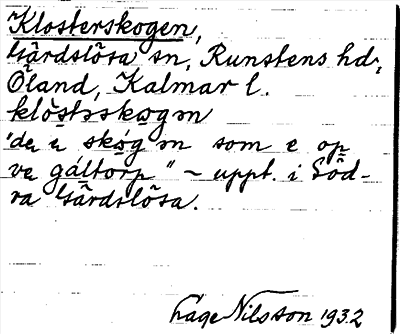 Klosterskogen,
Gärdslösa sn, Runstens hd,
Öland, Kalmar l.
klȯ́stəskɷgən
"dɛ ä skɷ́g ən som e op
ve gáltorp" ~ uppt. i Söd-
ra Gärdslösa.
Hage Nilsson 1932